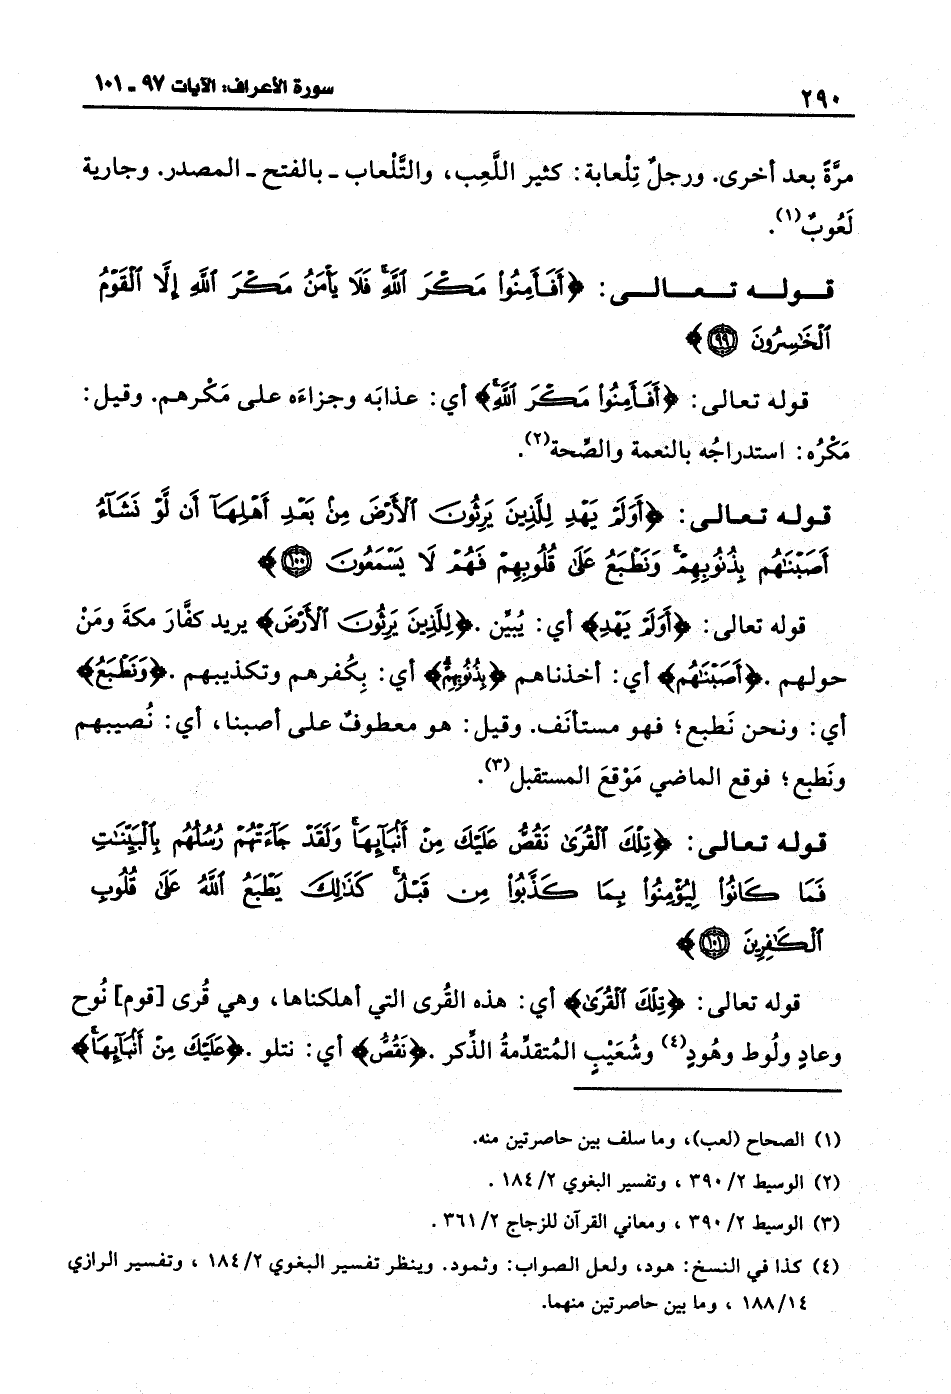 ٢٩٠
سورة الأعراف: الآيات ٩٧ ـ ١٠١
مرَّةً بعد أخرى. ورجلٌ تِلْعابة: كثير اللَّعِب، والتَّلْعاب ـ بالفتح ـ المصدر. وجارية
لَعُوبٌ(١).
قوله تعالى: ﴿أَفَأَمِنُوا۟ مَكْرَ ٱللَّهِ ۚ فَلَا يَأْمَنُ مَكْرَ ٱللَّهِ إِلَّا ٱلْقَوْمُ
ٱلْخَـٰسِرُونَ ۝٩٩﴾
قوله تعالى: ﴿أَفَأَمِنُوا۟ مَكْرَ ٱللَّهِ ۚ﴾ أي: عذابَه وجزاءَه على مَكْرهم. وقيل:
مَكْرُه: استدراجُه بالنعمة والصِّحة(٢).
قوله تعالى: ﴿أَوَلَمْ يَهْدِ لِلَّذِينَ يَرِثُونَ ٱلْأَرْضَ مِنۢ بَعْدِ أَهْلِهَآ أَن لَّوْ نَشَآءُ
أَصَبْنَـٰهُم بِذُنُوبِهِمْ ۚ وَنَطْبَعُ عَلَىٰ قُلُوبِهِمْ فَهُمْ لَا يَسْمَعُونَ ۝١٠٠﴾
قوله تعالى: ﴿أَوَلَمْ يَهْدِ﴾ أي: يُبيِّن. ﴿لِلَّذِينَ يَرِثُونَ ٱلْأَرْضَ﴾ يريد كفَّارَ مكةَ ومَنْ
حولهم. ﴿أَصَبْنَـٰهُم﴾ أي: أخذناهم ﴿بِذُنُوبِهِمْ ۚ﴾ أي: بِكُفرهم وتكذيبهم. ﴿وَنَطْبَعُ﴾
أي: ونحن نَطبع؛ فهو مستأنَف. وقيل: هو معطوفٌ على أصبنا، أي: نُصيبهم
ونَطبع؛ فوقع الماضي مَوْقعَ المستقبل(٣).
قوله تعالى: ﴿تِلْكَ ٱلْقُرَىٰ نَقُصُّ عَلَيْكَ مِنْ أَنۢبَآئِهَا ۚ وَلَقَدْ جَآءَتْهُمْ رُسُلُهُم بِٱلْبَيِّنَـٰتِ
فَمَا كَانُوا۟ لِيُؤْمِنُوا۟ بِمَا كَذَّبُوا۟ مِن قَبْلُ ۚ كَذَٰلِكَ يَطْبَعُ ٱللَّهُ عَلَىٰ قُلُوبِ
ٱلْكَـٰفِرِينَ ۝١٠١﴾
قوله تعالى: ﴿تِلْكَ ٱلْقُرَىٰ﴾ أي: هذه القُرى التي أهلكناها، وهي قُرى [قوم] نُوح
وعادٍ ولُوط وهُودٍ(٤) وشُعَيْبٍ المُتقدِّمةُ الذِّكر. ﴿نَقُصُّ﴾ أي: نتلو. ﴿عَلَيْكَ مِنْ أَنۢبَآئِهَا ۚ﴾
(١) الصحاح (لعب)، وما سلف بين حاصرتين منه.
(٢) الوسيط ٢/ ٣٩٠ ، وتفسير البغوي ٢/ ١٨٤ .
(٣) الوسيط ٢/ ٣٩٠ ، ومعاني القرآن للزجاج ٢/ ٣٦١ .
(٤) كذا في النسخ: هود، ولعل الصواب: وثمود. وينظر تفسير البغوي ٢/ ١٨٤ ، وتفسير الرازي
١٤/ ١٨٨ ، وما بين حاصرتين منهما.